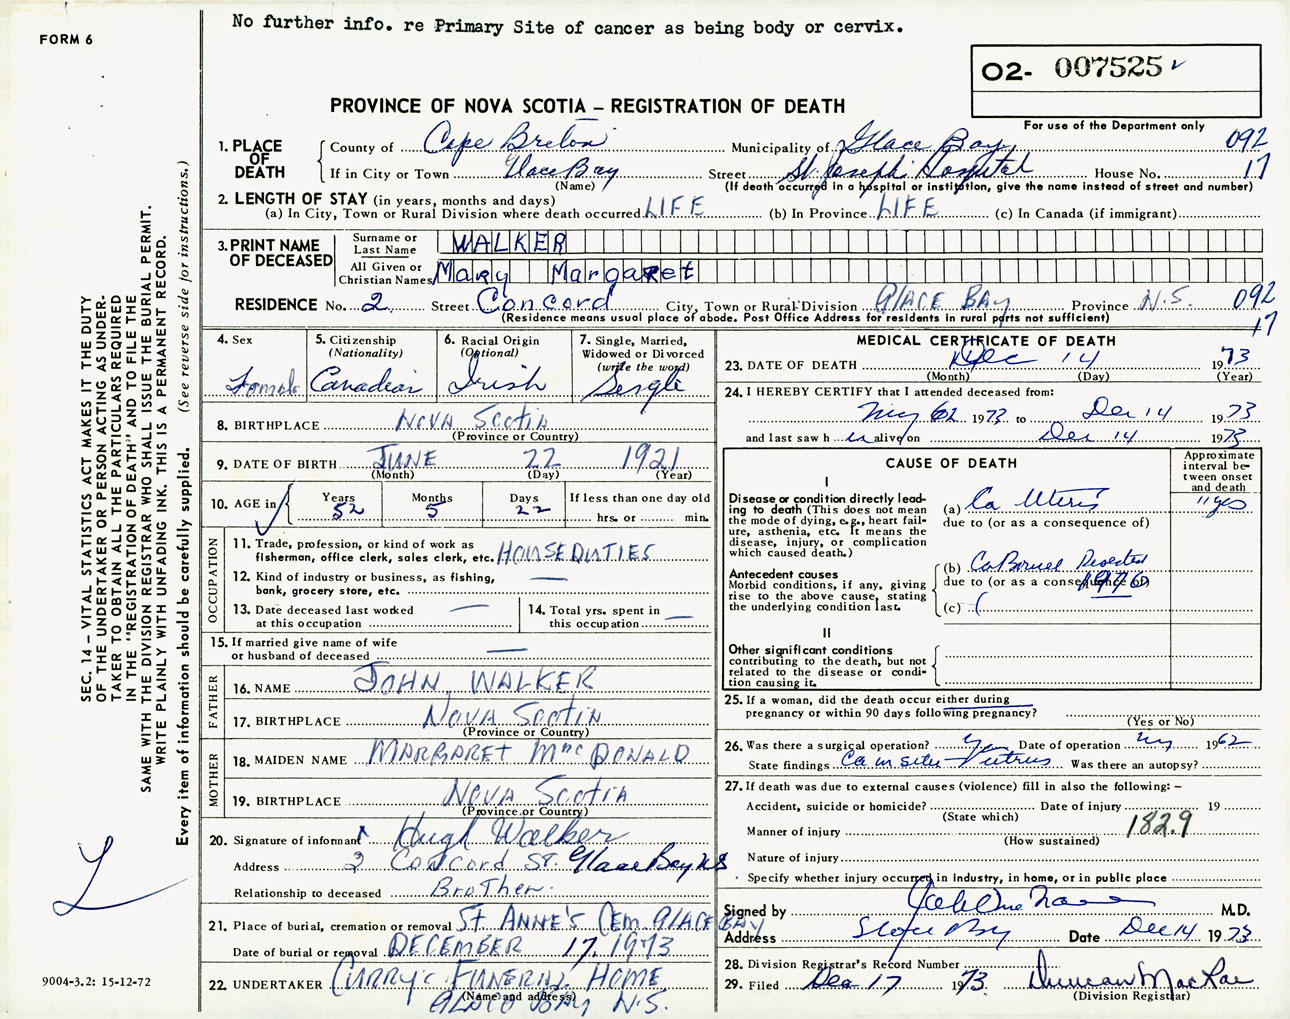 No further info. re Primary Site of cancer as being body or cervix.
FORM 6
O2- 007525
PROVINCE OF NOVA SCOTIA – REGISTRATION OF DEATH
For use of the Department only
1. PLACE OF DEATH
County of Cape Breton Municipality of Glace Bay 092
If in City or Town Glace Bay Street St. Joseph's Hospital House No. 17
(Name) (If death occurred in a hospital or institution, give the name instead of street and number)
2. LENGTH OF STAY (in years, months and days)
(a) In City, Town or Rural Division where death occurred LIFE (b) In Province LIFE (c) In Canada (if immigrant)
3. PRINT NAME OF DECEASED
Surname or Last Name WALKER
All Given or Christian Names Mary Margaret
RESIDENCE No. 2 Street Concord City, Town or Rural Division GLACE BAY Province N.S. 092
(Residence means usual place of abode. Post Office Address for residents in rural parts not sufficient) 17
4. Sex
Female
5. Citizenship
(Nationality)
Canadian
6. Racial Origin
(Optional)
Irish
7. Single, Married,
Widowed or Divorced
(write the word)
Single
8. BIRTHPLACE NOVA SCOTIA
(Province or Country)
9. DATE OF BIRTH JUNE 22 1921
(Month) (Day) (Year)
10. AGE in
Years Months Days If less than one day old
52 5 22 hrs. or min.
OCCUPATION
11. Trade, profession, or kind of work as
fisherman, office clerk, sales clerk, etc. HOUSE DUTIES
12. Kind of industry or business, as fishing, —
bank, grocery store, etc.
13. Date deceased last worked —
at this occupation
14. Total yrs. spent in
this occupation —
15. If married give name of wife
or husband of deceased —
FATHER
16. NAME JOHN WALKER
17. BIRTHPLACE NOVA SCOTIA
(Province or Country)
MOTHER
18. MAIDEN NAME MARGARET MacDONALD
19. BIRTHPLACE NOVA SCOTIA
(Province or Country)
20. Signature of informant Hugh Walker
Address 2 Concord St. Glace Bay NS
Relationship to deceased Brother.
21. Place of burial, cremation or removal ST ANNE'S CEM. GLACE BAY
Date of burial or removal DECEMBER 17, 1973
22. UNDERTAKER CURRY'S FUNERAL HOME
(Name and address)
GLACE BAY N.S.
MEDICAL CERTIFICATE OF DEATH
23. DATE OF DEATH Dec 14 1973
(Month) (Day) (Year)
24. I HEREBY CERTIFY that I attended deceased from:
62 1973 to Dec 14 1973
and last saw h er alive on Dec 14 1973
CAUSE OF DEATH
Approximate
interval be-
tween onset
and death
I
Disease or condition directly lead-
ing to death (This does not mean
the mode of dying, e.g., heart fail-
ure, asthenia, etc. It means the
disease, injury, or complication
which caused death.)
(a) Ca Uteris 11 yrs
due to (or as a consequence of)
Antecedent causes
Morbid conditions, if any, giving
rise to the above cause, stating
the underlying condition last.
(b) Ca Bowel Resected
due to (or as a consequence of) 1970
(c)
II
Other significant conditions
contributing to the death, but not
related to the disease or condi-
tion causing it.
25. If a woman, did the death occur either during
pregnancy or within 90 days following pregnancy?
(Yes or No)
26. Was there a surgical operation? Yes Date of operation 1962
State findings Ca in situ Uterus Was there an autopsy?
27. If death was due to external causes (violence) fill in also the following: –
Accident, suicide or homicide? Date of injury 19
(State which)
Manner of injury 182.9
(How sustained)
Nature of injury
Specify whether injury occurred in Industry, in home, or in public place
Signed by M.D.
Address Glace Bay Date Dec 14 1973
28. Division Registrar's Record Number
29. Filed Dec 17 1973. Duncan MacRae
(Division Registrar)
SEC. 14 – VITAL STATISTICS ACT MAKES IT THE DUTY
OF THE UNDERTAKER OR PERSON ACTING AS UNDER-
TAKER TO OBTAIN ALL THE PARTICULARS REQUIRED
IN THE "REGISTRATION OF DEATH" AND TO FILE THE
SAME WITH THE DIVISION REGISTRAR WHO SHALL ISSUE THE BURIAL PERMIT.
WRITE PLAINLY WITH UNFADING INK. THIS IS A PERMANENT RECORD.
Every item of information should be carefully supplied. (See reverse side for instructions.)
9004-3.2: 15-12-72